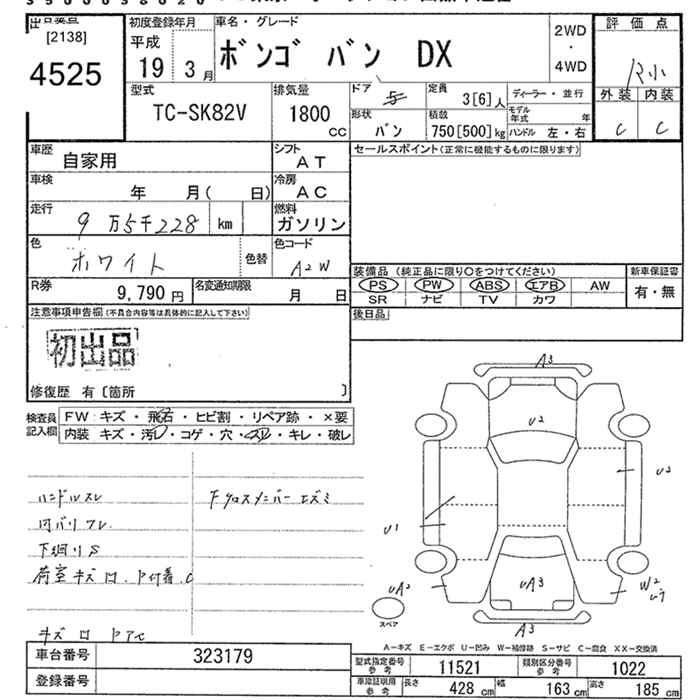 [2138]
4525
初度登録年月
平成
19年 3月
車名・グレード
ボンゴ バン DX
2WD
・
4WD
評価点
R小
外装 内装
C C
型式
TC-SK82V
排気量
1800
cc
ドア 5
定員
3[6]人
ディーラー・並行
形状
バン
積載
750[500]kg
モデル年式 年
ハンドル 左・右
車歴
自家用
シフト
AT
セールスポイント(正常に機能するものに限ります)
車検
年 月( 日)
冷房
AC
走行
9万5千228 km
燃料
ガソリン
色
ホワイト
色替
色コード
A2W
装備品 (純正品に限り○をつけてください)
新車保証書
PS PW ABS エアB AW
有・無
SR ナビ TV カワ
R券
9,790円
名変通知期限
月 日
後日品
注意事項申告欄(不具合内容等は具体的に記入して下さい)
初出品
修復歴 有〔箇所 〕
検査員記入欄
FW: キズ・飛石・ヒビ割・リペア跡・×要
内装 キズ・汚レ・コゲ・穴・スレ・キレ・破レ
ハンドルスレ
下廻りS
A3
U2
U2
U1
UA2
UA3
W2
A3
スペア
A-キズ E-エクボ U-凹み W-補修跡 S-サビ C-腐食 XX-交換済
車台番号
323179
登録番号
型式指定番号
参考
11521
類別区分番号
参考
1022
車庫証明用
参考
長さ 428cm
幅 163cm
高さ 185cm